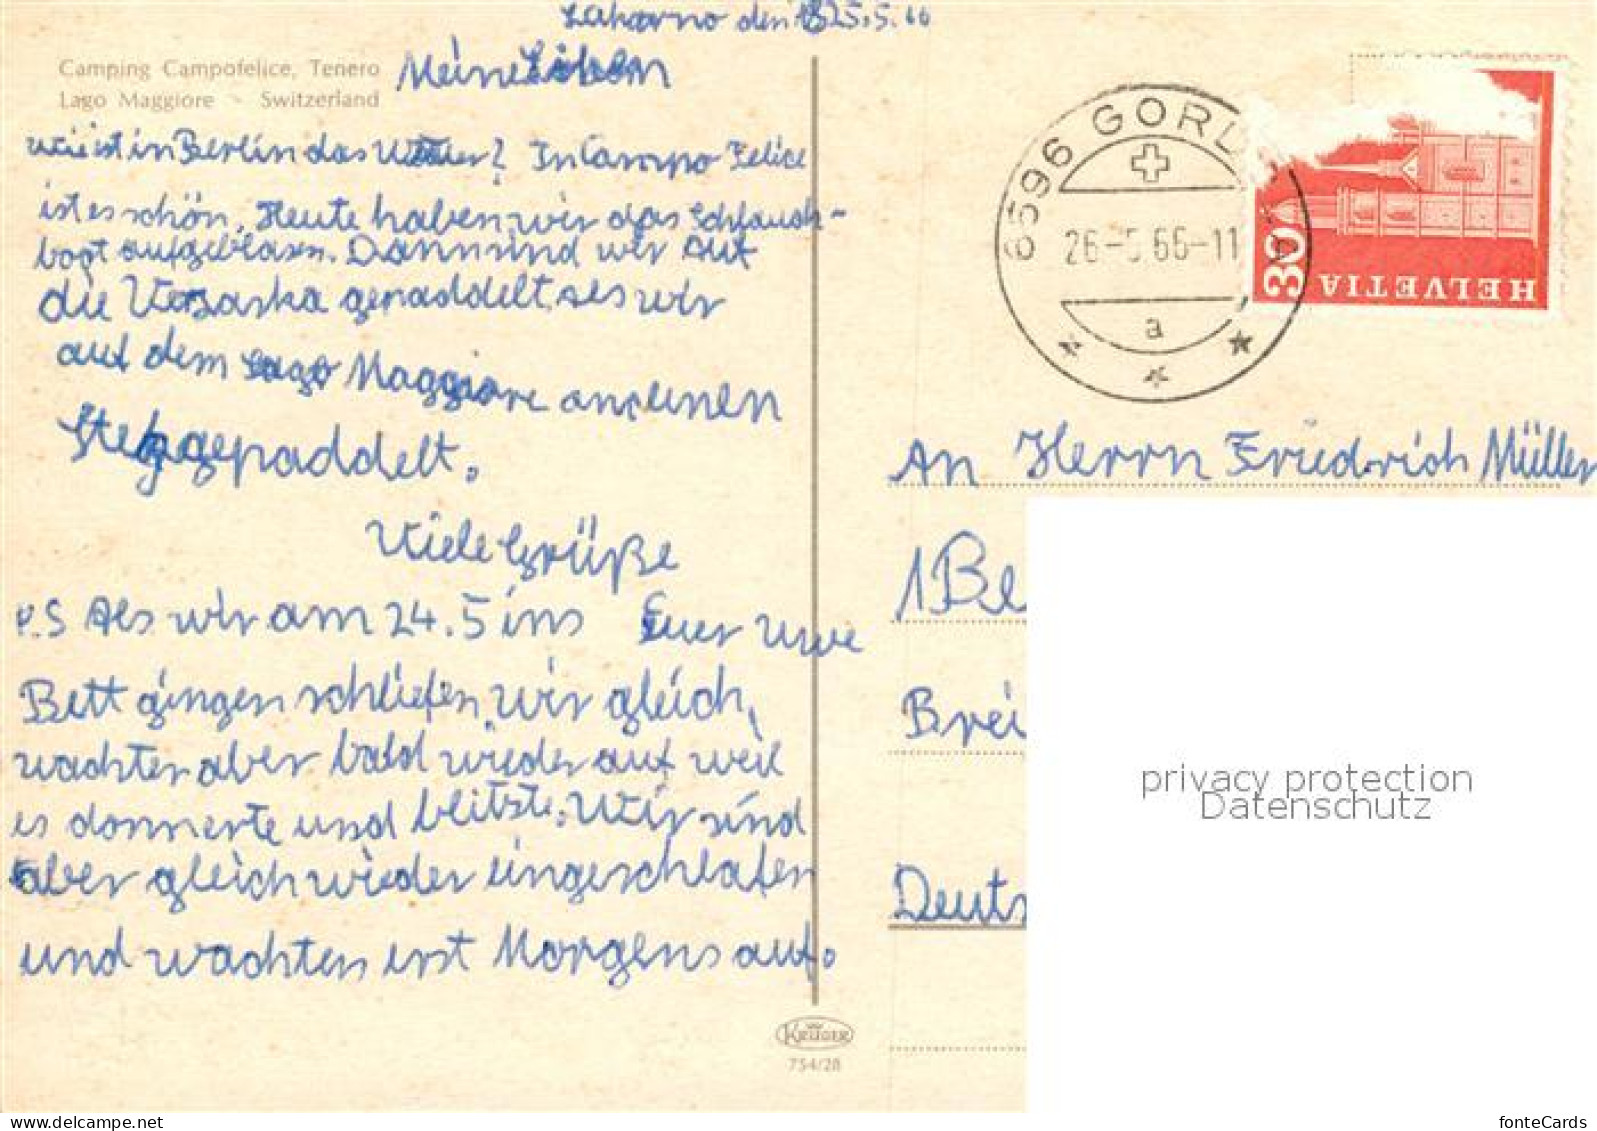 Lokarno den 25.5.66
Camping Campofelice, Tenero
Lago Maggiore - Switzerland
Meine Lieben
wie ist in Berlin das Wetter? In Campo Felice
ist es schön. Heute haben wir das Schlauch-
boot aufgeblasen. Dann sind wir auf
die Verzaska gepaddelt. als wir
auf dem Lago Maggiore an den
Steg gepaddelt.
Viele Grüße
Euer Uwe
P.S Als wir am 24.5 ins
Bett gingen schliefen wir gleich,
wachten aber bald wieder auf weil
es donnerte und blitzte. Wir sind
aber gleich wieder eingeschlafen
und wachten erst Morgens auf.
KRÜGER
754/28
6596 GORD
26-5 66-11
a
30
HELVETIA
An Herrn Friedrich Müller
1 Be
Brei
Deuts
privacy protection
Datenschutz
www.delcampe.net
fonteCards